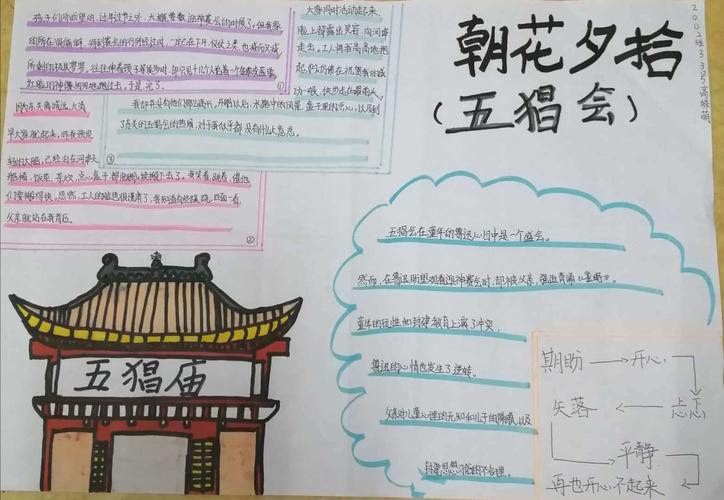 朝花夕拾
(五猖会)
孩子们所盼望的,过年过节之外,大概要数迎神赛会的时候了。但我家
的所在很偏僻,待到赛会的行列经过时,一定已在下午,仪仗之类,也减而又减,
所剩的极其寥寥。往往伸着颈子等候多时,却只见十几个人抬着一个金脸或蓝脸
红脸的神像匆匆地跑过去。于是,完了。
①
因为东关离城远,大清
早大家就起来。昨夜预定
好的大船,已经泊在河埠头,
船椅、饭菜、茶炊、点心盒子,都在陆续搬下去了。我笑着,跳着,催他
们要搬得快。忽然,工人的脸色很谨肃了,我知道有些蹊跷,四面一看,
父亲就站在我背后。
②
大家同时活动起来,
脸上都露出笑容,向河埠
走去。工人将我高高地抱
起,仿佛在祝贺我的成
功一般,快步走在最前头。
我却并没有他们那么高兴。开船以后,水路中的风景,盒子里的点心,以及到
了东关的五猖会的热闹,对于我似乎都没有什么大意思。
③
五猖会在童年的鲁迅心目中是一个盛会。
然而,在鲁迅盼望观看迎神赛会时,却被父亲强迫背诵《鉴略》。
童年的玩性和封建教育上演了冲突,
鲁迅的心情也发生了逆转。
父亲对儿童心理的无知和儿子的隔膜,以及
封建思想习俗的不合理。
五猖庙
期盼 → 开心
失落 ← 忐忑
平静
再也开心不起来